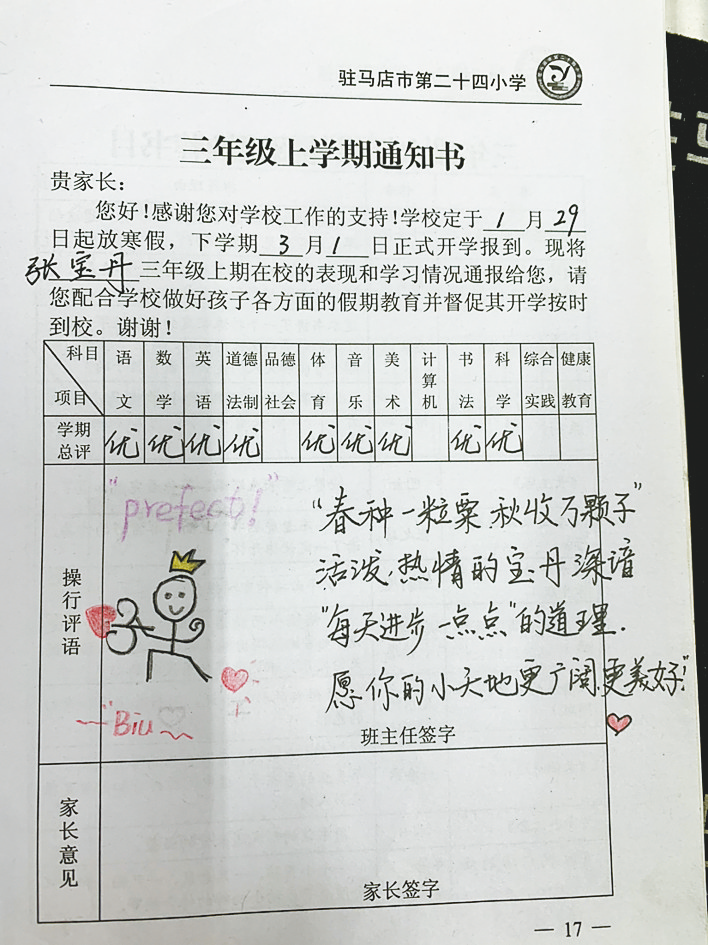 驻马店市第二十四小学
三年级上学期通知书
贵家长:
您好!感谢您对学校工作的支持!学校定于 1 月 29
日起放寒假,下学期 3 月 1 日正式开学报到。现将
张宝丹 三年级上期在校的表现和学习情况通报给您,请
您配合学校做好孩子各方面的假期教育并督促其开学按时
到校。谢谢!
科目 语文 数学 英语 道德法制 品德社会 体育 音乐 美术 计算机 书法 科学 综合实践 健康教育
项目
学期总评 优 优 优 优 优 优 优 优 优
操行评语
"prefect!"
"春种一粒粟,秋收万颗子"
活泼、热情的宝丹深谙
"每天进步一点点"的道理.
愿你的小天地更广阔,更美好!
~"Biu~
班主任签字
家长意见
家长签字
— 17 —